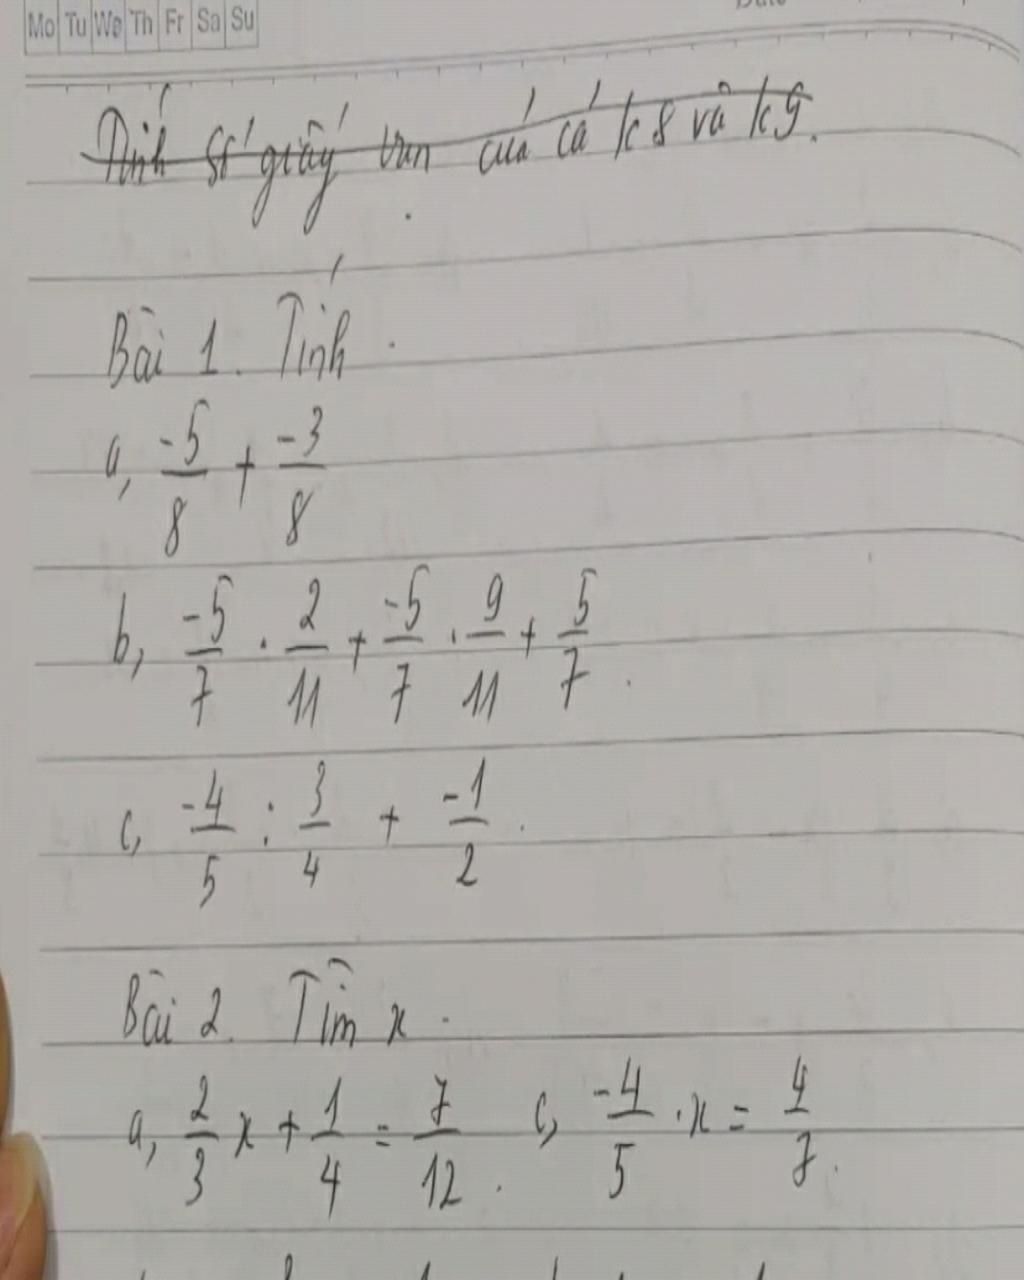 Mo Tu We Th Fr Sa Su
Tính số giấy vụn của cả k8 và k9.
Bài 1. Tính.
a, -5/8 + -3/8
b, -5/7 . 2/11 + -5/7 . 9/11 + 5/7.
c, -4/5 : 3/4 + -1/2.
Bài 2. Tìm x.
a, 2/3 x + 1/4 = 7/12. c, -4/5 . x = 4/7.